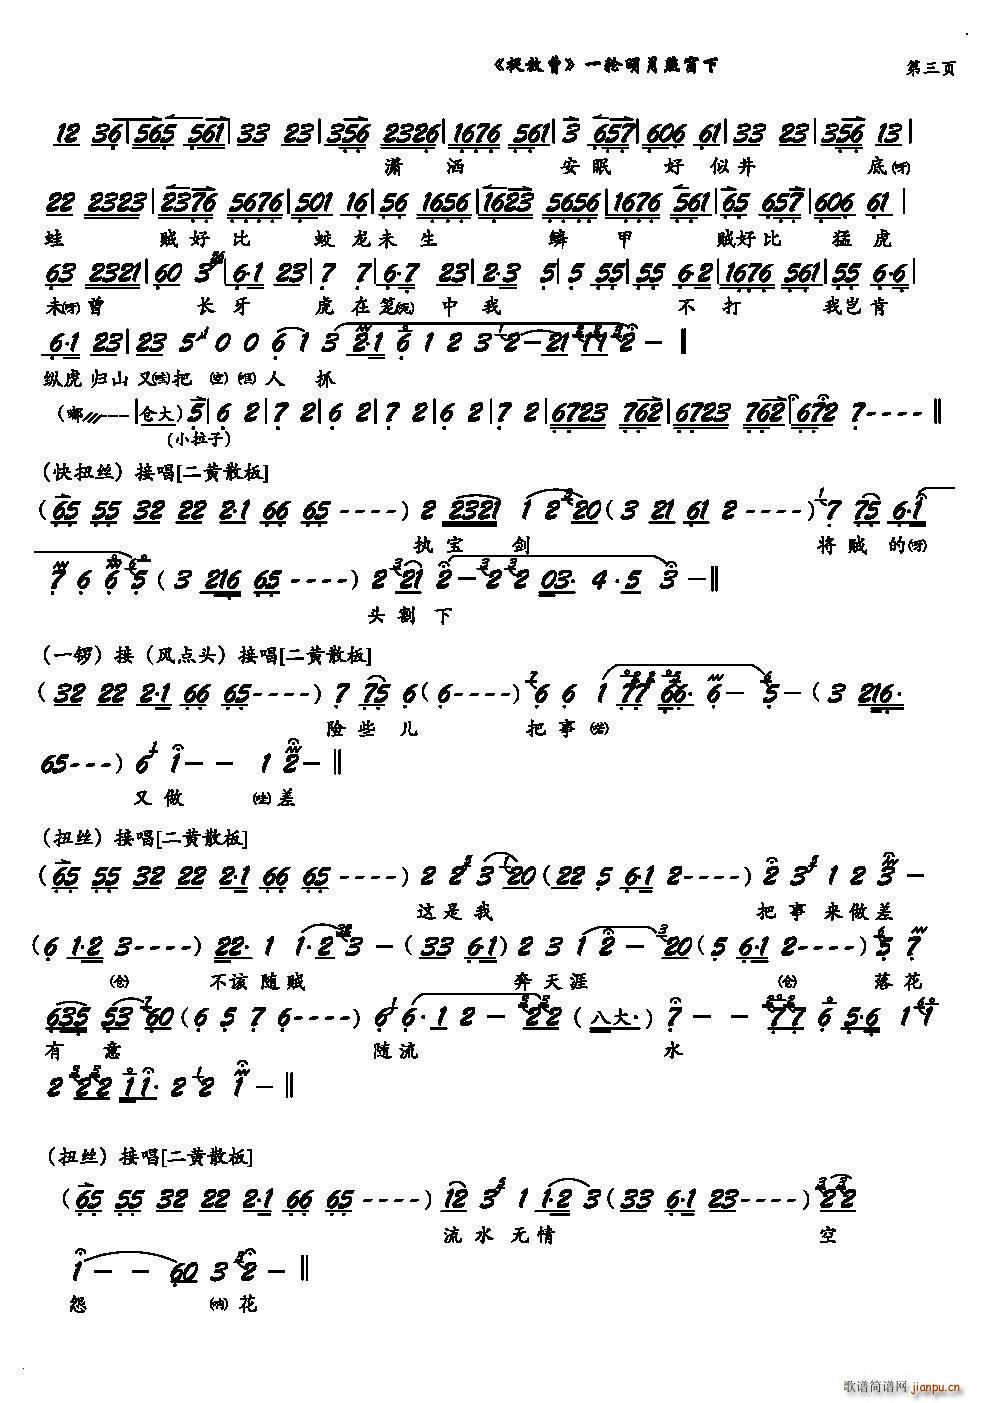 《捉放曹》一轮明月照窗下 第三页
12 36 565 561 33 23 356 2326 1676 561 3 657 606 61 33 23 356 13
潇 洒 安 眠 好 似 井 底(呀)
22 2323 2376 5676 501 16 56 1656 1623 5656 1676 561 65 657 606 61
蛙 贼 好 比 蛟 龙 未 生 鳞 甲 贼 好 比 猛 虎
63 2321 60 3 6·1 23 7 7 6·7 23 2·3 5 5 55 55 6·2 1676 561 55 6·6
未(呀)曾 长 牙 虎 在 笼 中 我 不 打 我 岂 肯
6·1 23 23 5 0 0 6 1 3 2·1 6 1 2 3 2— 21 77 2 —
纵 虎 归 山 又 把 人 抓
(嘟---仓大) 5 6 2 7 2 6 2 7 2 6 2 7 2 6723 762 6723 762 672 7----
(小拉子)
(快扭丝)接唱[二黄散板]
(65 55 32 22 2·1 66 65 ----) 2 2321 1 2 20 (3 21 61 2----) 7 75 6·1
执 宝 剑 将 贼 的(呀)
7 6 6 5 (3 216 65 ----) 2 21 2— 2 2 03· 4·5 3 —
头 割 下
(一锣)接(风点头)接唱[二黄散板]
(32 22 2·1 66 65----) 7 75 6 (6----) 6 6 1 77 66· 6— 5— (3 216·
险 些 儿 把 事
65---) 6 1— — 1 2—
又 做 (哇)差
(扭丝)接唱[二黄散板]
(65 55 32 22 2·1 66 65 ----) 2 2 3 20 (22 5 6·1 2----) 2 3 1 2 3 —
这 是 我 把 事 来 做 差
(6 1·2 3----) 22· 1 1·2 3 — (33 6·1) 2 3 1 2 — 20 (5 6·1 2----) 5 7
(仓) 不 该 随 贼 奔 天 涯 (仓) 落 花
635 53 60 (6 5 7 6----) 6 6·1 2 — 22 (八大·) 7 — — 77 6 5·6 1 1
有 意 随 流 水
2 22 11· 2 2 1 —
(扭丝)接唱[二黄散板]
(65 55 32 22 2·1 66 65 ----) 12 3 1 1·2 3 (33 6·1 23----) 22
流 水 无 情 空
1 — — 60 3 2 —
怨 (呐)花
歌谱简谱网 jianpu.cn